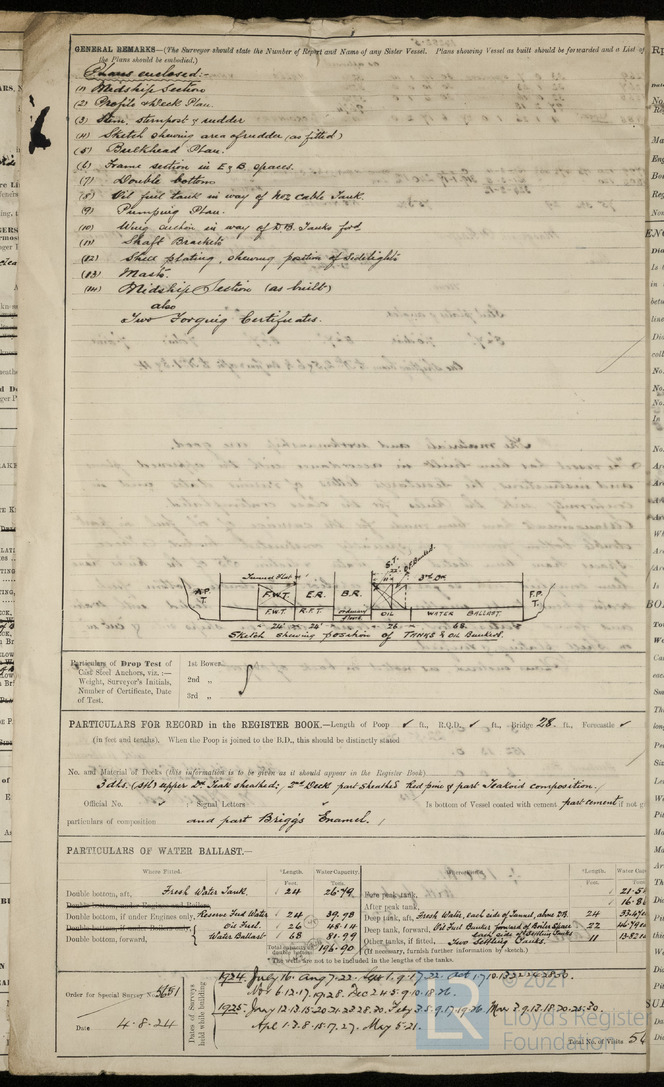 GENERAL REMARKS—(The Surveyor should state the Number of Report and Name of any Sister Vessel. Plans showing Vessel as built should be forwarded and a List of
the Plans should be embodied.)
Plans enclosed:-
(1) Midship Section
(2) Profile & Deck Plan.
(3) Stem, sternpost & rudder
(4) Sketch shewing area of rudder (as fitted)
(5) Bulkhead Plan.
(6) Frame section in E & B spaces.
(7) Double bottom
(8) Oil fuel tank in way of No 2 Cable Tank.
(9) Pumping Plan.
(10) Wing section in way of D.B. Tanks ford
(11) Shaft Brackets
(12) Shell plating, shewing position of Sidelights
(13) Masts.
(14) Midship Section (as built)
also
Two Forging Certificates.
S.T.
O.F. Bunker
Tunnel Flat
3rd DK
A.P.T.
F.W.T.
E.R.
B.R.
F.P.T.
F.W.T.
R.F.T.
ordinary floors
OIL
WATER BALLAST.
24' 24' 26 68
Sketch shewing position of TANKS & OIL Bunkers.
Particulars of Drop Test of
Cast Steel Anchors, viz. :—
Weight, Surveyor's Initials,
Number of Certificate, Date
of Test.
1st Bower
2nd „
3rd „
PARTICULARS FOR RECORD in the REGISTER BOOK.—Length of Poop ✓ ft., R.Q.D. ✓ ft., Bridge 28. ft., Forecastle ✓
(in feet and tenths). When the Poop is joined to the B.D., this should be distinctly stated
No. and Material of Decks (this information is to be given as it should appear in the Register Book)
3 dks. (stl) upper Dk Teak sheathed; 2nd Deck part sheathed Red pine & part Teakoid composition.
Official No. Signal Letters Is bottom of Vessel coated with cement part cement if not
particulars of composition and part Briggs Enamel.
PARTICULARS OF WATER BALLAST.—
Where Fitted. *Length. Water Capacity.
Feet. Tons.
Double bottom, aft, Fresh Water Tank. 24 26.79
Double bottom, if under Engines only, Reserve Feed Water 24 39.98
Oil Fuel. 26 48.14
Double bottom, forward, Water Ballast 68 81.99
Total capacity of double bottom 196.90
*The wells are not to be included in the lengths of the tanks.
*Length. Water Capa
Feet. Tons.
Fore peak tank,
After peak tank,
Deep tank, aft, Fresh Water, each side of Tunnel, above D.B. 24
Deep tank, forward, Oil Fuel Bunker forward of Boiler Space 22
Other tanks, if fitted, Two Settling Tanks. 11
(If necessary, furnish further information by sketch.)
Order for Special Survey No.
Date 4.8.24
Dates of Surveys
held while building
1924. July 16. Aug 7.22. Sept 1.9.17.22. Oct 1.7.10.13.22.24.28.30.
Nov 6.12.17.19.28. Dec 2.4.5.9.10.18.26.
1925. Jany 12.13.15.20.21.23.28.30. Feby 3.5.9.17.19.26. Mar 3.9.13.18.20.25.30.
Apl 1.3.8.15.17.27. May 5.21.
Total No. of Visits 56
© 2021
LR
Lloyd's Register
Foundation